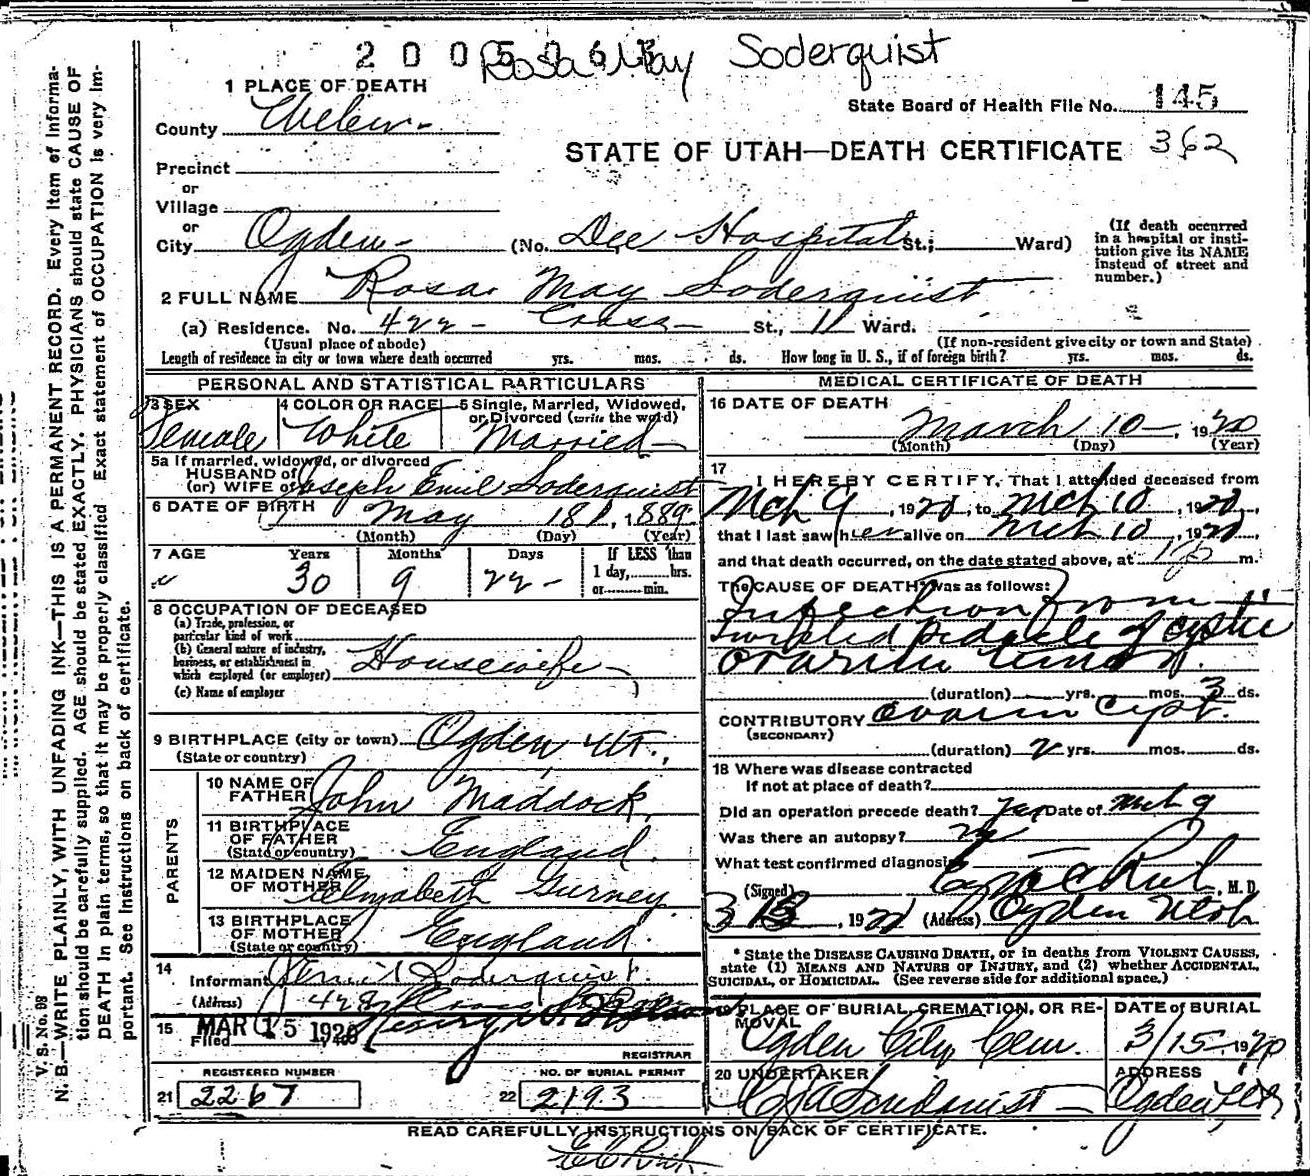 2 0 0 5 0 6 1
Rosa May Soderquist
1 PLACE OF DEATH
State Board of Health File No. 145
County Weber
STATE OF UTAH—DEATH CERTIFICATE 362
Precinct
or
Village
or
City Ogden (No. Dee Hospital St.; Ward)
(If death occurred in a hospital or insti-
tution give its NAME
instead of street and
number.)
2 FULL NAME Rosa May Soderquist
(a) Residence. No. 422 - Cross St., 11 Ward.
(Usual place of abode)
(If non-resident give city or town and State)
Length of residence in city or town where death occurred yrs. mos. ds. How long in U. S., if of foreign birth? yrs. mos. ds.
PERSONAL AND STATISTICAL PARTICULARS
3 SEX
Female
4 COLOR OR RACE
White
5 Single, Married, Widowed,
or Divorced (write the word)
Married
5a If married, widowed, or divorced
HUSBAND of
(or) WIFE of Joseph Emil Soderquist
6 DATE OF BIRTH May 18, 1889
(Month) (Day) (Year)
7 AGE Years Months Days If LESS than
30 9 22 - 1 day, hrs.
or min.
8 OCCUPATION OF DECEASED
(a) Trade, profession, or
particular kind of work
(b) General nature of industry,
business, or establishment in
which employed (or employer) Housewife
(c) Name of employer
9 BIRTHPLACE (city or town) Ogden, Ut.,
(State or country)
PARENTS
10 NAME OF
FATHER John Maddock
11 BIRTHPLACE
OF FATHER England
(State or country)
12 MAIDEN NAME
OF MOTHER Elizabeth Gurney
13 BIRTHPLACE
OF MOTHER England.
(State or country)
14
Informant J. Emil Soderquist
(Address)
15 MAR 15 1920
Filed
REGISTRAR
REGISTERED NUMBER
21 2267
NO. OF BURIAL PERMIT
22 2193
MEDICAL CERTIFICATE OF DEATH
16 DATE OF DEATH
March 10 -, 1920
(Month) (Day) (Year)
17
I HEREBY CERTIFY, That I attended deceased from
Mch 9, 1920, to Mch 10, 1920,
that I last saw her alive on Mch 10, 1920
and that death occurred, on the date stated above, at 1 p m.
The CAUSE OF DEATH* was as follows:
Infection from
twisted pedicle of cystic
ovarian tumor.
(duration) yrs. mos. 3 ds.
CONTRIBUTORY Ovarian Cyst.
(SECONDARY)
(duration) 2 yrs. mos. ds.
18 Where was disease contracted
If not at place of death?
Did an operation precede death? Yes Date of Mch 9
Was there an autopsy?
What test confirmed diagnosis
(Signed) Rich, M. D.
3 13, 19 (Address) Ogden Utah
* State the DISEASE CAUSING DEATH, or in deaths from VIOLENT CAUSES,
state (1) MEANS AND NATURE OF INJURY, and (2) whether ACCIDENTAL,
SUICIDAL, or HOMICIDAL. (See reverse side for additional space.)
19 PLACE OF BURIAL, CREMATION, OR RE-
MOVAL
Ogden City Cem.
DATE of BURIAL
3/15, 1920
20 UNDERTAKER
ADDRESS
Ogden, Utah
READ CAREFULLY INSTRUCTIONS ON BACK OF CERTIFICATE.
E C Rich
V. S. No. 98
N. B.—WRITE PLAINLY, WITH UNFADING INK—THIS IS A PERMANENT RECORD. Every item of informa-
tion should be carefully supplied. AGE should be stated EXACTLY. PHYSICIANS should state CAUSE OF
DEATH in plain terms, so that it may be properly classified. Exact statement of OCCUPATION is very im-
portant. See instructions on back of certificate.